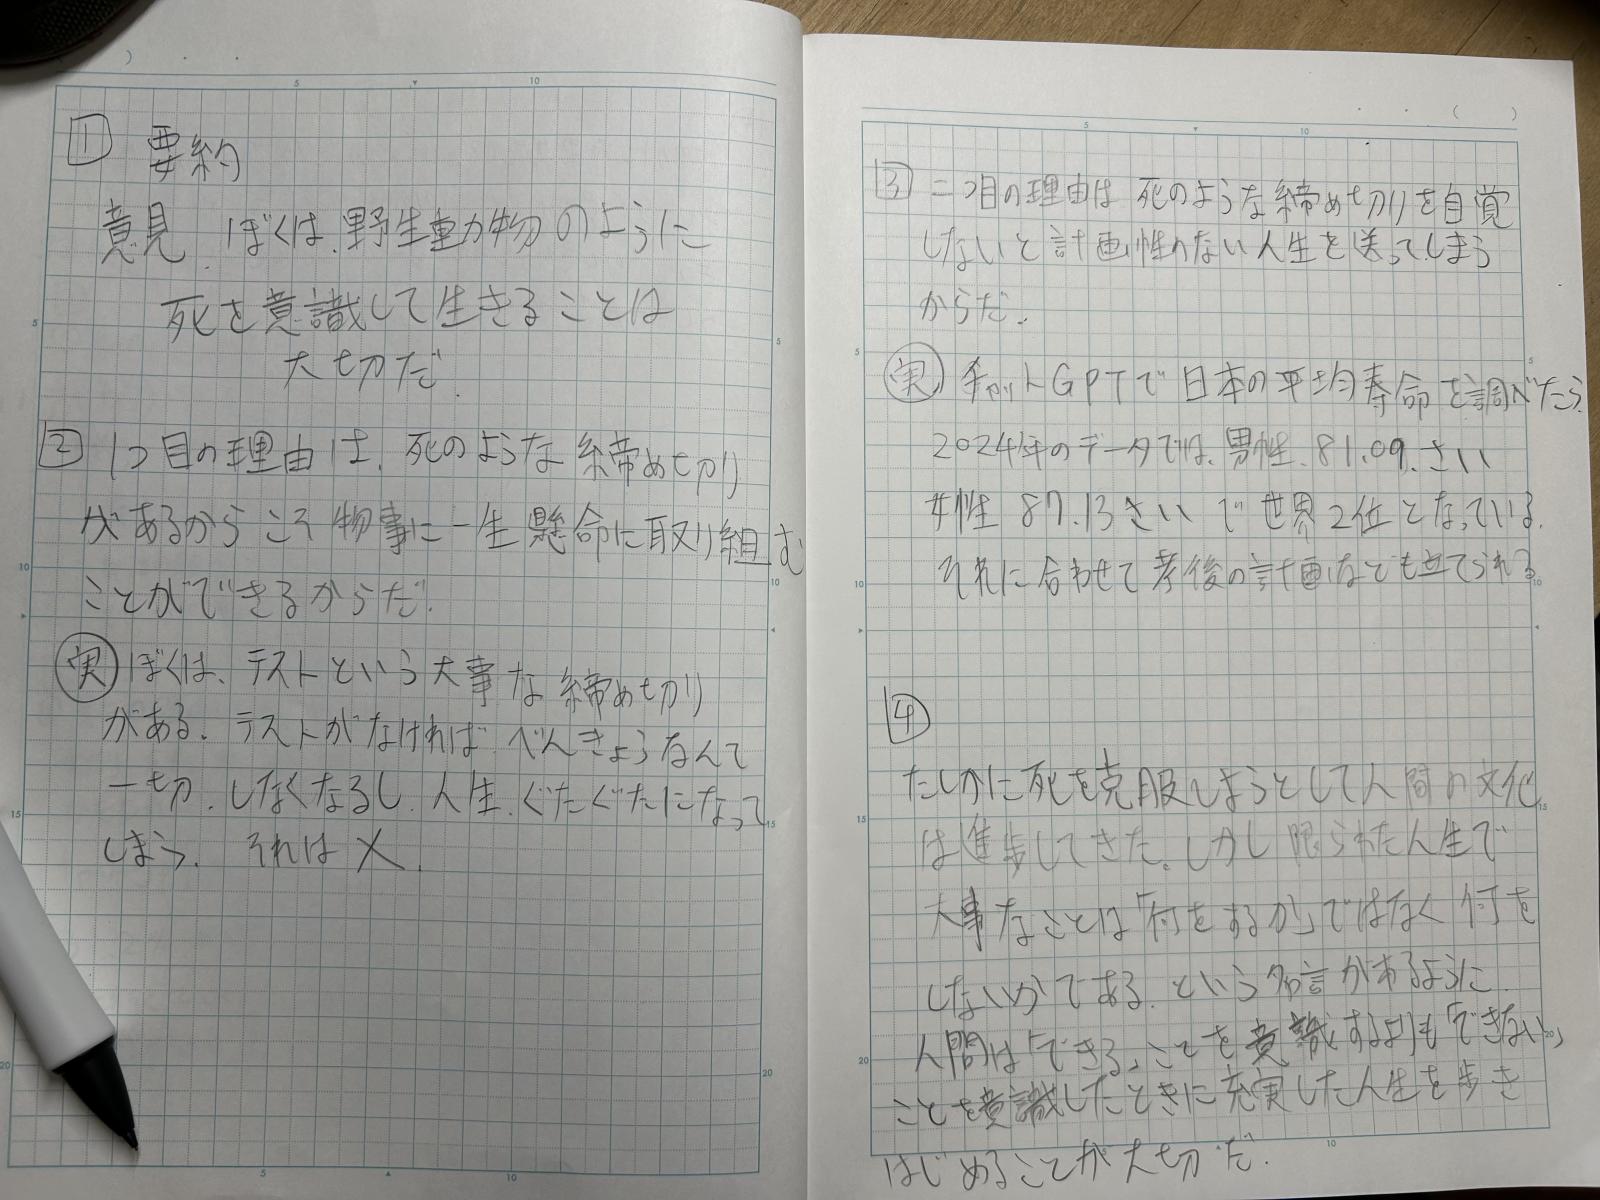 1 要約
意見 ぼくは、野生動物のように
死を意識して生きることは
大切だ
2 1つ目の理由は、死のような締め切り
があるからこそ物事に一生懸命に取り組む
ことができるからだ。
実 ぼくは、テストという大事な締め切り
がある。テストがなければべんきょうなんて
一切、しなくなるし、人生、ぐたぐたになって
しまう。それは×。
3 二つ目の理由は死のような締め切りを自覚
しないと計画性のない人生を送ってしまう
からだ。
実 チャットGPTで日本の平均寿命を調べたら
2024年のデータでは、男性、81.09、さい
女性 87.13さい で世界2位となっている。
それに合わせて老後の計画なども立てられる
4
たしかに死を克服しようとして人間の文化
は進歩してきた。しかし限られた人生で
大事なことは「何をするか」ではなく何を
しないかである。という名言があるように
人間は「できる」ことを意識するよりも「できない」
ことを意識したときに充実した人生を歩き
はじめることが大切だ。